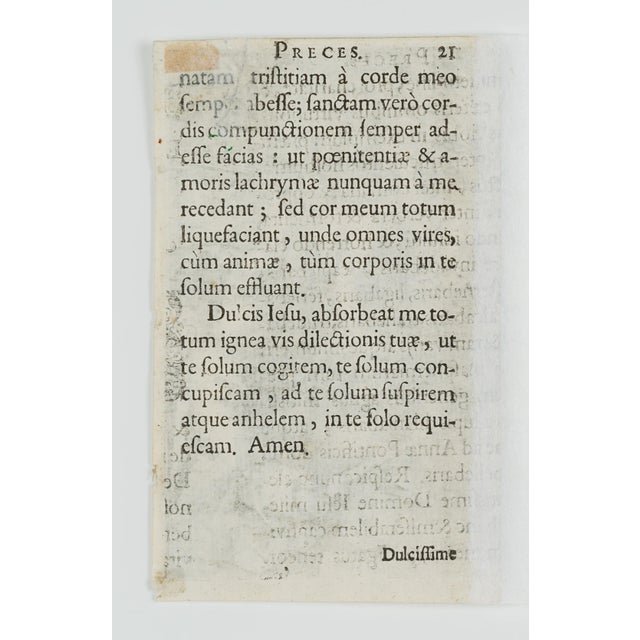 PRECES. 21
natam tristitiam à corde meo
semper abesse; sanctam verò cor-
dis compunctionem semper ad-
esse facias: ut pœnitentiæ & a-
moris lachrymæ nunquam à me
recedant; sed cor meum totum
liquefaciant, unde omnes vires,
cùm animæ, tùm corporis in te
solum effluant.
Dulcis Iesu, absorbeat me to-
tum ignea vis dilectionis tuæ, ut
te solum cogitem, te solum con-
cupiscam, ad te solum suspirem
atque anhelem, in te solo requi-
escam. Amen.
Dulcissime